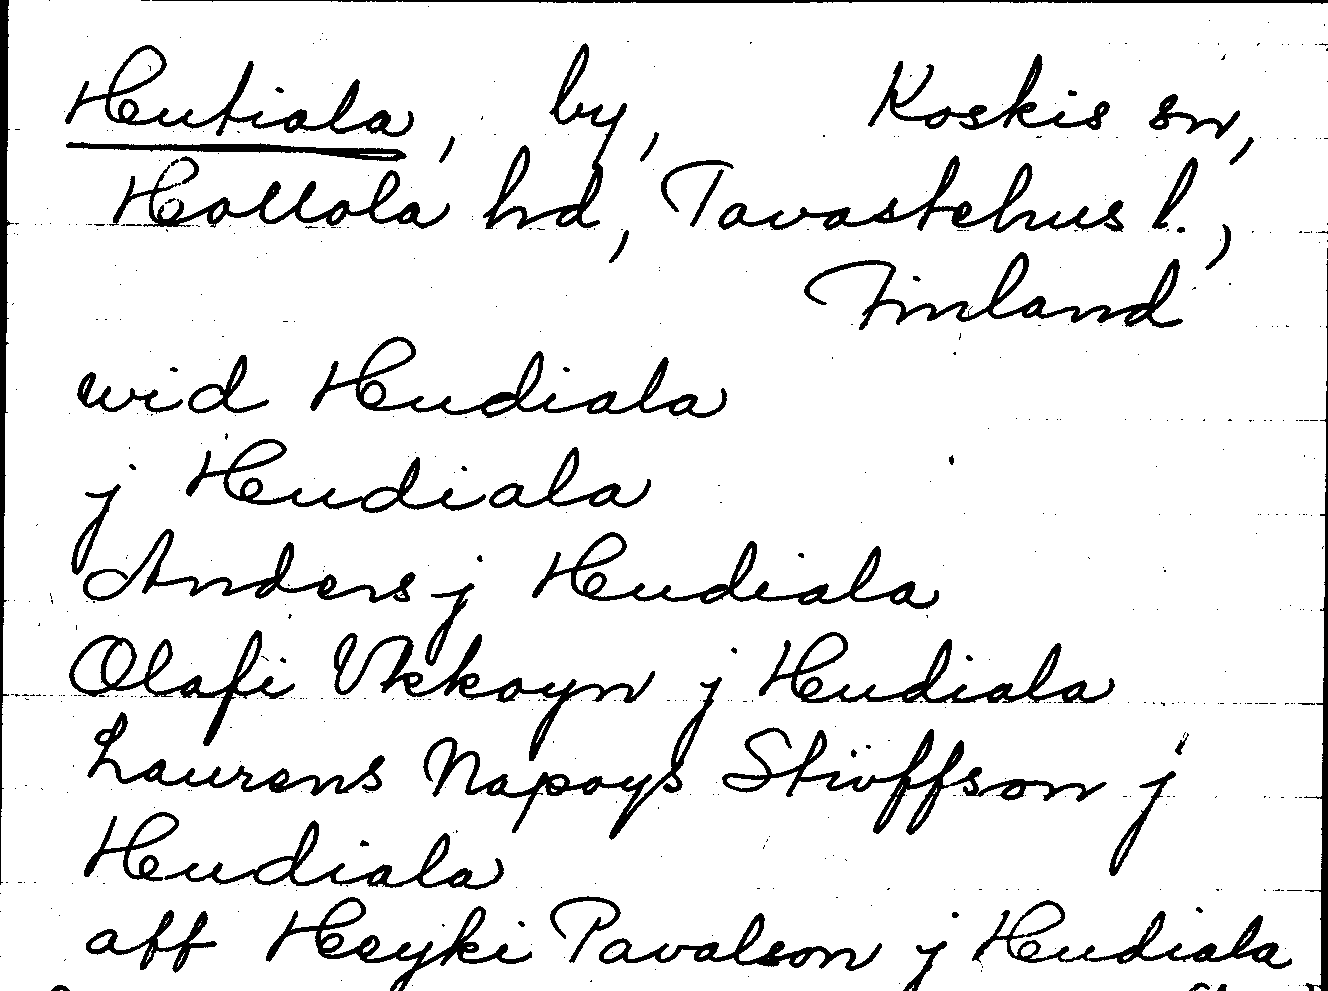 Hutiala, by, Koskis sn,
Hollola hd, Tavastehus l.,
Finland
wid Hudiala
j Hudiala
Anders j Hudiala
Olafi Vkkoyn j Hudiala
Laurens Napoys Stivffson j
Hudiala
aff Heyki Pavalson j Hudiala